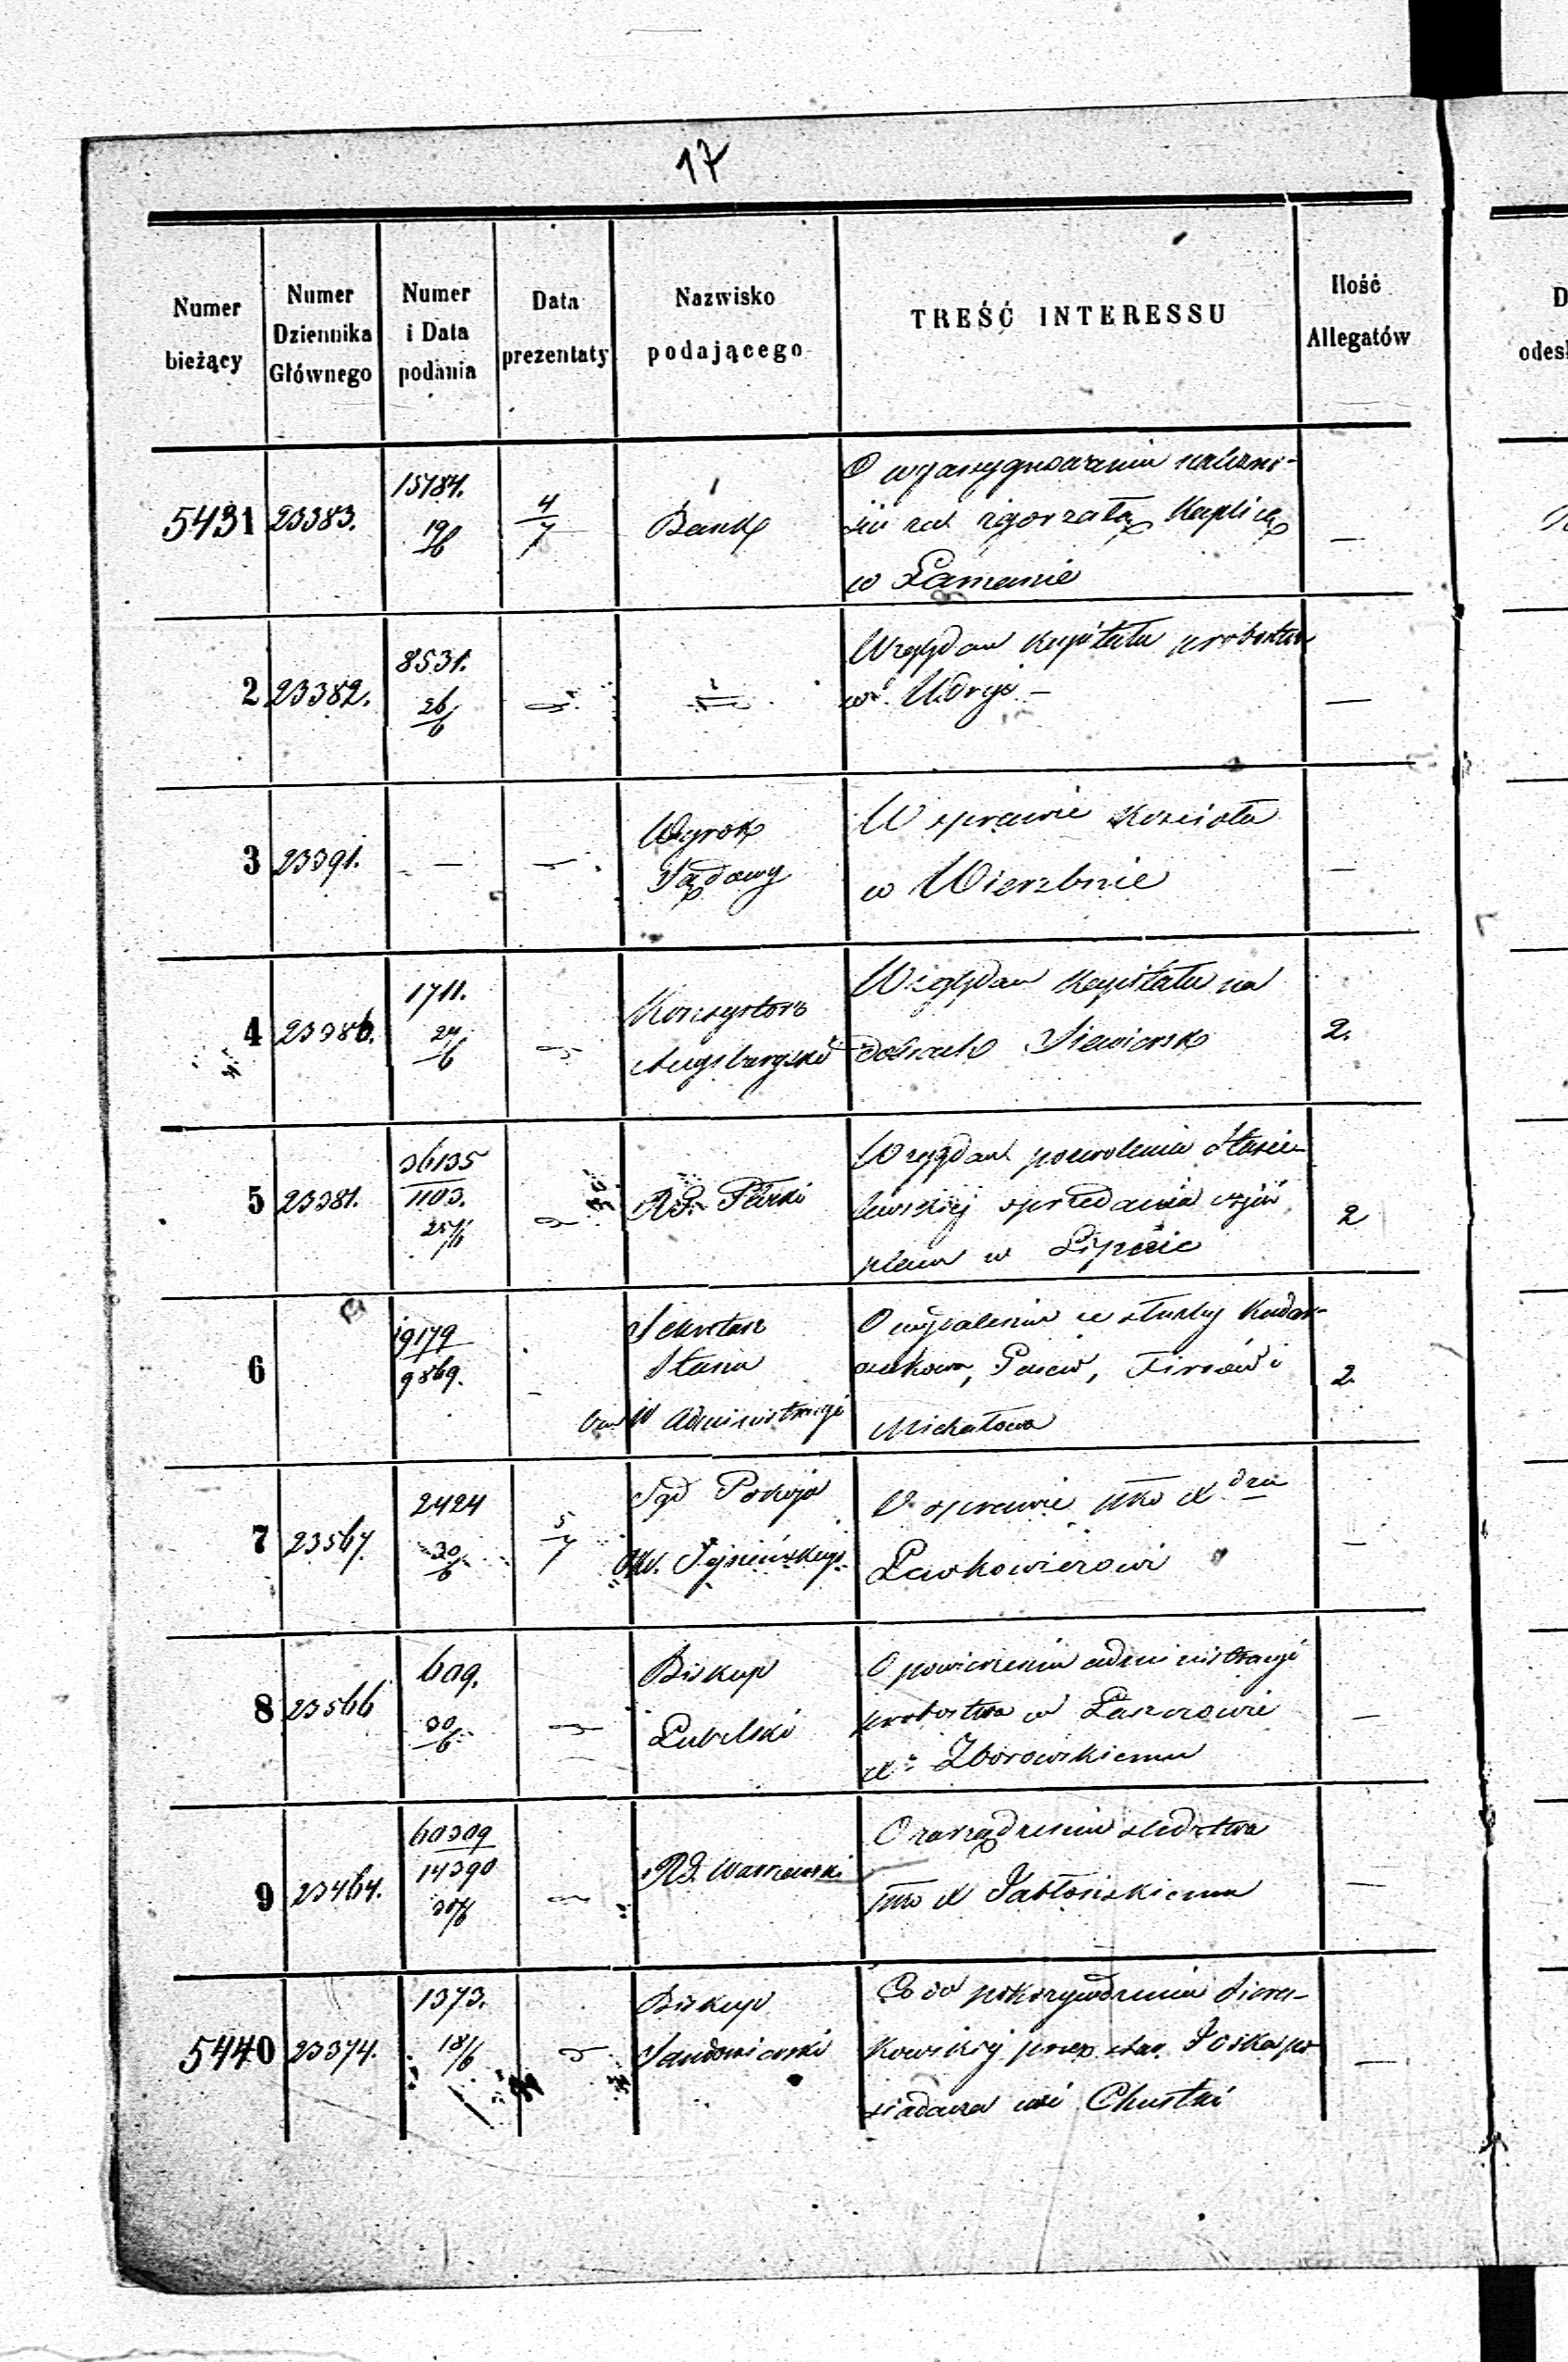 17
Numer bieżący | Numer Dziennika Głównego | Numer i Data podania | Data prezentaty | Nazwisko podającego | TREŚĆ INTERESSU | Ilość Allegatów
5431 23383. 15184. 19/6 4/7 Bank
O wyassygnowaniu należno-
ści za zgorzałą Kaplicę
w Łamanie
—
2 23382. 8531. 26/6
Względem kapitału probostwa
w Udryc —
—
3 23391. — — Wyrok
Sądowy
W sprawie Kościoła
w Wierzbnie
—
4 23386. 1711. 24/6 Konsystorz
Augsburgski
Względem Kapitału na
dobrach Siewiersk
2.
5 23381. 36135
1103.
25/6
R.G. Płocki
Względem pozwolenia
sprzedania
placu w Lipnie
2
6 19179
9869.
Sekretarz
Stanu
W Administracyi
O wydaleniu ze służby
Michałowa
2
7 23567. 2424 30/6 5/7 Sąd Pokoju
Okr. Sejneńskiego
W sprawie pko X dzu
Ławkowiczowi
—
8 23566 609. 30/6 Biskup
Lubelski
O powierzeniu administracyi
probostwa w Łaszczowie
X. Zborowskiemu
—
9 23464. 60309
14390
30/6
R.G. Warszawski
O zarządzeniu śledztwa
pko X Jabłońskiemu
—
5440 23374. 1373. 18/6 Biskup
Sandomierski
Co do pokrzywdzenia
przez star. Joska po-
siadacza wsi Chustki
—
D
odes